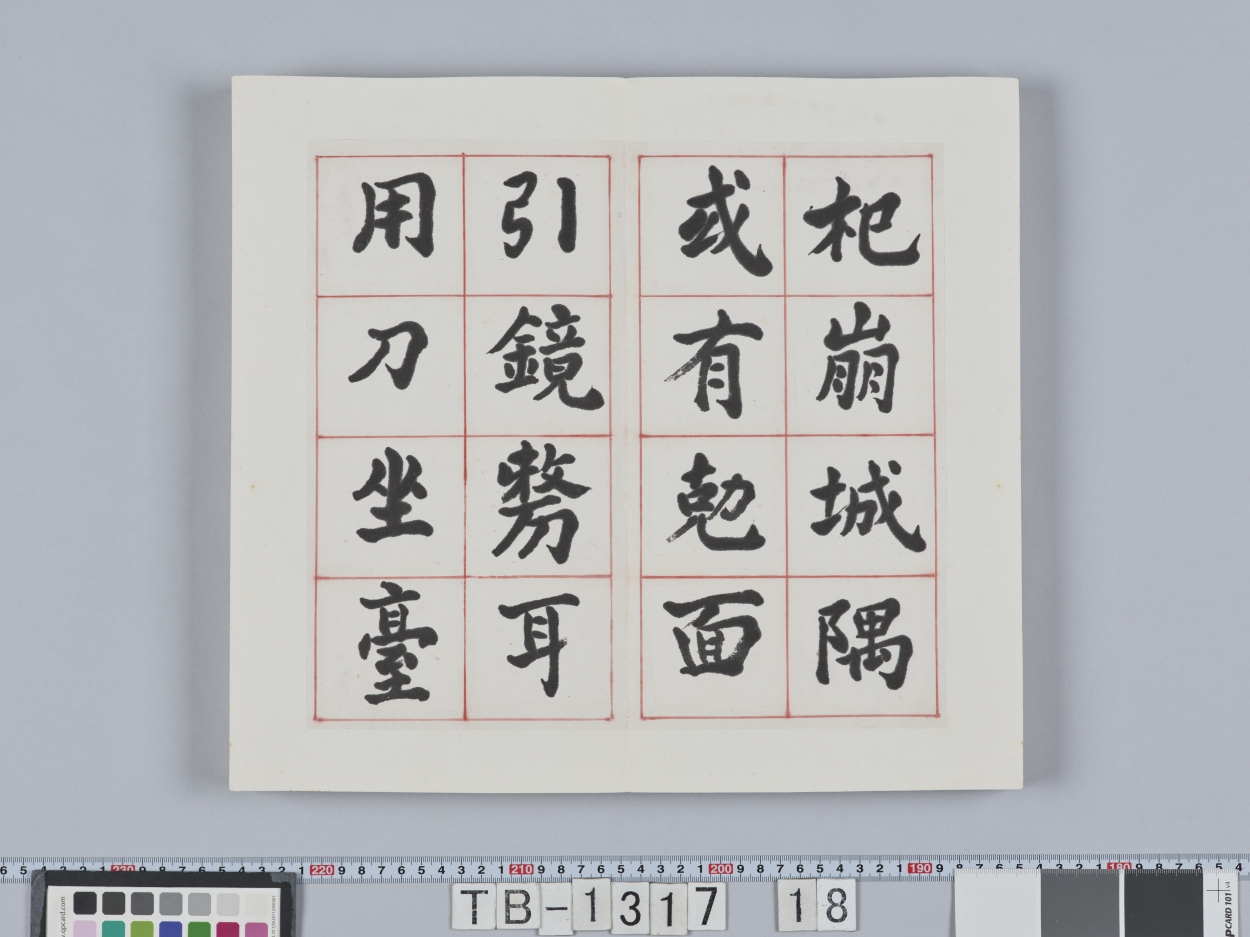 杞崩城隅
或有勊面
引鏡剺耳
用刀坐臺
TB-1317 18